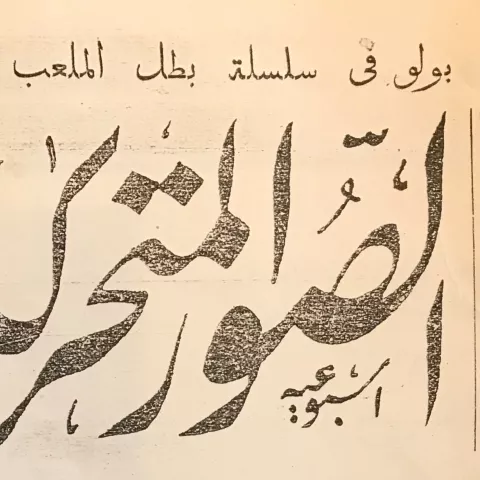 بولو فى سلسلة بطل الملعب
الصور المتحرك
اسبوعيه